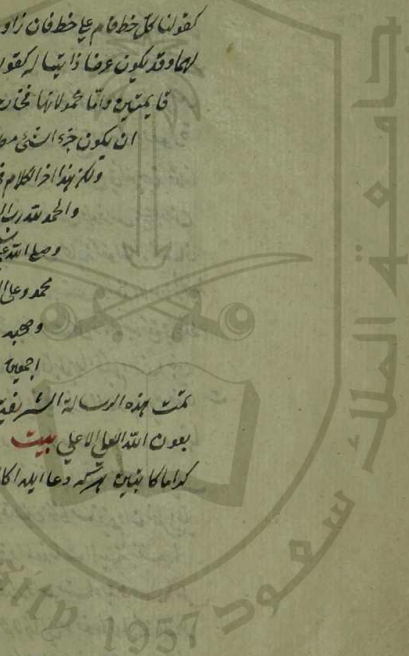 كقولنا كل خط قام على خط فان زاو
لهما وقد يكون عرضا ذاتيا له كقولـ
قايمتين واما محمولاتها فخار
ان يكون جزء الشئ مط
وليكن هذا اخر الكلام فـ
والحمد لله رب ال
وصلى الله ع
محمد وعلى ال
وصحبه
اجمعين
تمت هذه الرسالة الشريفة
بعون الله العلي الاعلى بيت
كراما كاتبين دعا ايله اكا
جامعة الملك سعود
1957